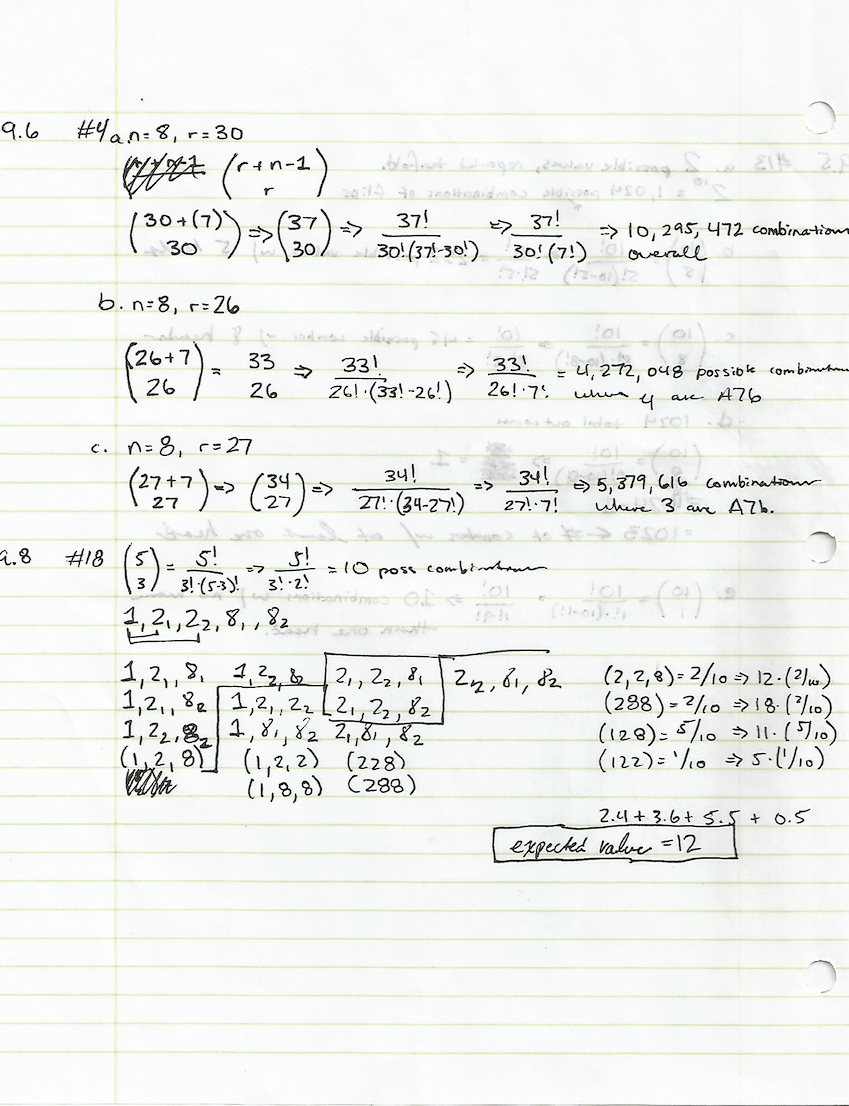 9.6 #4 a. n=8, r=30
(r+n-1 r)
(30+(7) 30) => (37 30) => 37!/30!(37!-30!) => 37!/30!(7!) => 10,295,472 combinations overall
b. n=8, r=26
(26+7 26) = 33 26 => 33!/26!·(33!-26!) => 33!/26!·7! = 4,272,048 possible combinations where 4 are A76
c. n=8, r=27
(27+7 27) => (34 27) => 34!/27!·(34-27!) => 34!/27!·7! => 5,379,616 combinations where 3 are A76.
9.8 #18 (5 3) = 5!/3!·(5-3)! => 5!/3!·2! = 10 poss combinations
1, 2₁, 2₂, 8₁, 8₂
1, 2₁, 8₁ 1, 2₂, 8₂ 2₁, 2₂, 8₁ 2₂, 8₁, 8₂ (2,2,8) = 2/10 => 12·(2/10)
1, 2₁, 8₂ 1, 2₁, 2₂ 2₁, 2₂, 8₂ (288) = 2/10 => 18·(2/10)
1, 2₂, 8₂ 1, 8₁, 8₂ 2₁, 8₁, 8₂ (128) = 5/10 => 11·(5/10)
(1, 2, 8) (1, 2, 2) (228) (122) = 1/10 => 5·(1/10)
(1, 8, 8) (288)
2.4 + 3.6 + 5.5 + 0.5
expected value = 12